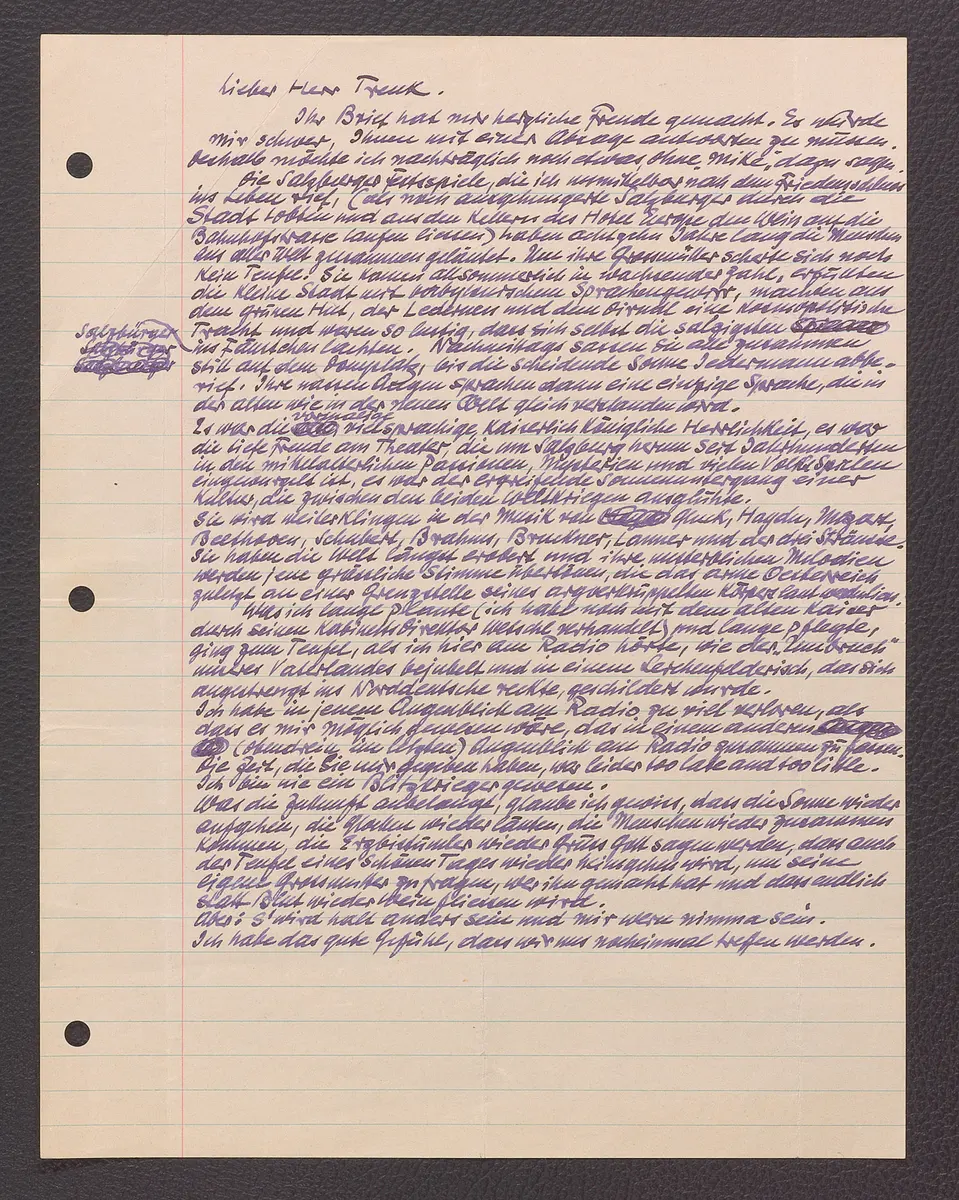 Lieber Herr Treuk.
Ihr Brief hat mir herzliche Freude gemacht. Es würde
mir schwer, Ihnen mit einer Absage antworten zu müssen.
Deshalb möchte ich nachträglich noch etwas "ohne Mike" dazu sagen.
Die Salzburger Festspiele, die ich unmittelbar nach dem Friedensschluss
ins Leben rief, (als noch ausgehungerte Salzburger durch die
Stadt tobten und aus den Kellern des Hotel Europe den Wein auf die
Bahnhofstrasse laufen liessen) haben achtzehn Jahre lang die Menschen
aus aller Welt zusammen geläutet. Um ihre Grossmütter scherte sich noch
kein Teufel. Sie kamen allsommerlich in wachsender Zahl, erfüllten
die kleine Stadt mit babylonischem Sprachengewirr, machten aus
dem grünen Hut, der Ledernen und dem Dirndl eine kosmopolitische
Tracht und waren so lustig, dass sich selbst die salzigsten
Salzbürger
ins Fäustchen lachten. Nachmittags sassen sie alle zusammen
still auf dem Domplatz, bis die scheidende Sonne Jedermann abbe-
rief. Ihre nassen Augen sprachen dann eine einzige Sprache, die in
der alten wie in der neuen Welt gleich verstanden wird.
Es war die vormalige vielsprachige, Kaiserlich Königliche Herrlichkeit, es war
die tiefe Freude am Theater, die um Salzburg herum seit Jahrhunderten
in den mittelalterlichen Passionen, Mysterien und vielen Volks Spielen
eingewurzelt ist, es war der ergreifende Sonnenuntergang einer
Kultur, die zwischen den beiden Weltkriegen ausglühte.
Sie wird weiterklingen in der Musik von Gluck, Haydn, Mozart,
Beethoven, Schubert, Brahms, Bruckner, Lanner und der drei Sträusse.
Sie haben die Welt längst erobert und ihre unsterblichen Melodien
werden jene grässliche Stimme übertönen, die das arme Oesterreich
zuletzt an einer Grenzstelle seines argverkrüppelten Körpers laut
Was ich lange plante (ich habe noch mit dem alten Kaiser
durch seinen Kabinetts Direktor verhandelt) und lange pflegte,
ging zum Teufel, als ich hier am Radio hörte, wie der "Umbruch"
unseres Vaterlandes bejubelt und in einem Lerchenfelderisch, das sich
angestrengt ins Norddeutsche reckte, geschildert wurde.
Ich habe in jenem Augenblick am Radio zu viel verloren, als
dass es mir möglich gewesen wäre, das in einem anderen
(obendrein im letzten) Augenblick am Radio zusammen zu fassen.
Die Zeit, die Sie mir gegeben haben, war leider too late and too little.
Ich bin nie ein Blitzkrieger gewesen.
Was die Zukunft anbelangt, glaube ich gewiss, dass die Sonne wieder
aufgehen, die Glocken wieder läuten, die Menschen wieder zusammen
kommen, die Erzbistümler wieder Grüss Gott sagen werden, dass auch
der Teufel eines schönen Tages wieder heimgehen wird, um seine
eigene Grossmutter zu fragen, wer ihn gemacht hat und dass endlich
statt Blut wieder Wein fliessen wird.
Aber: S'wird halt anders sein und mir wern nimma sein.
Ich habe das gute Gefühl, dass wir uns nocheinmal treffen werden.